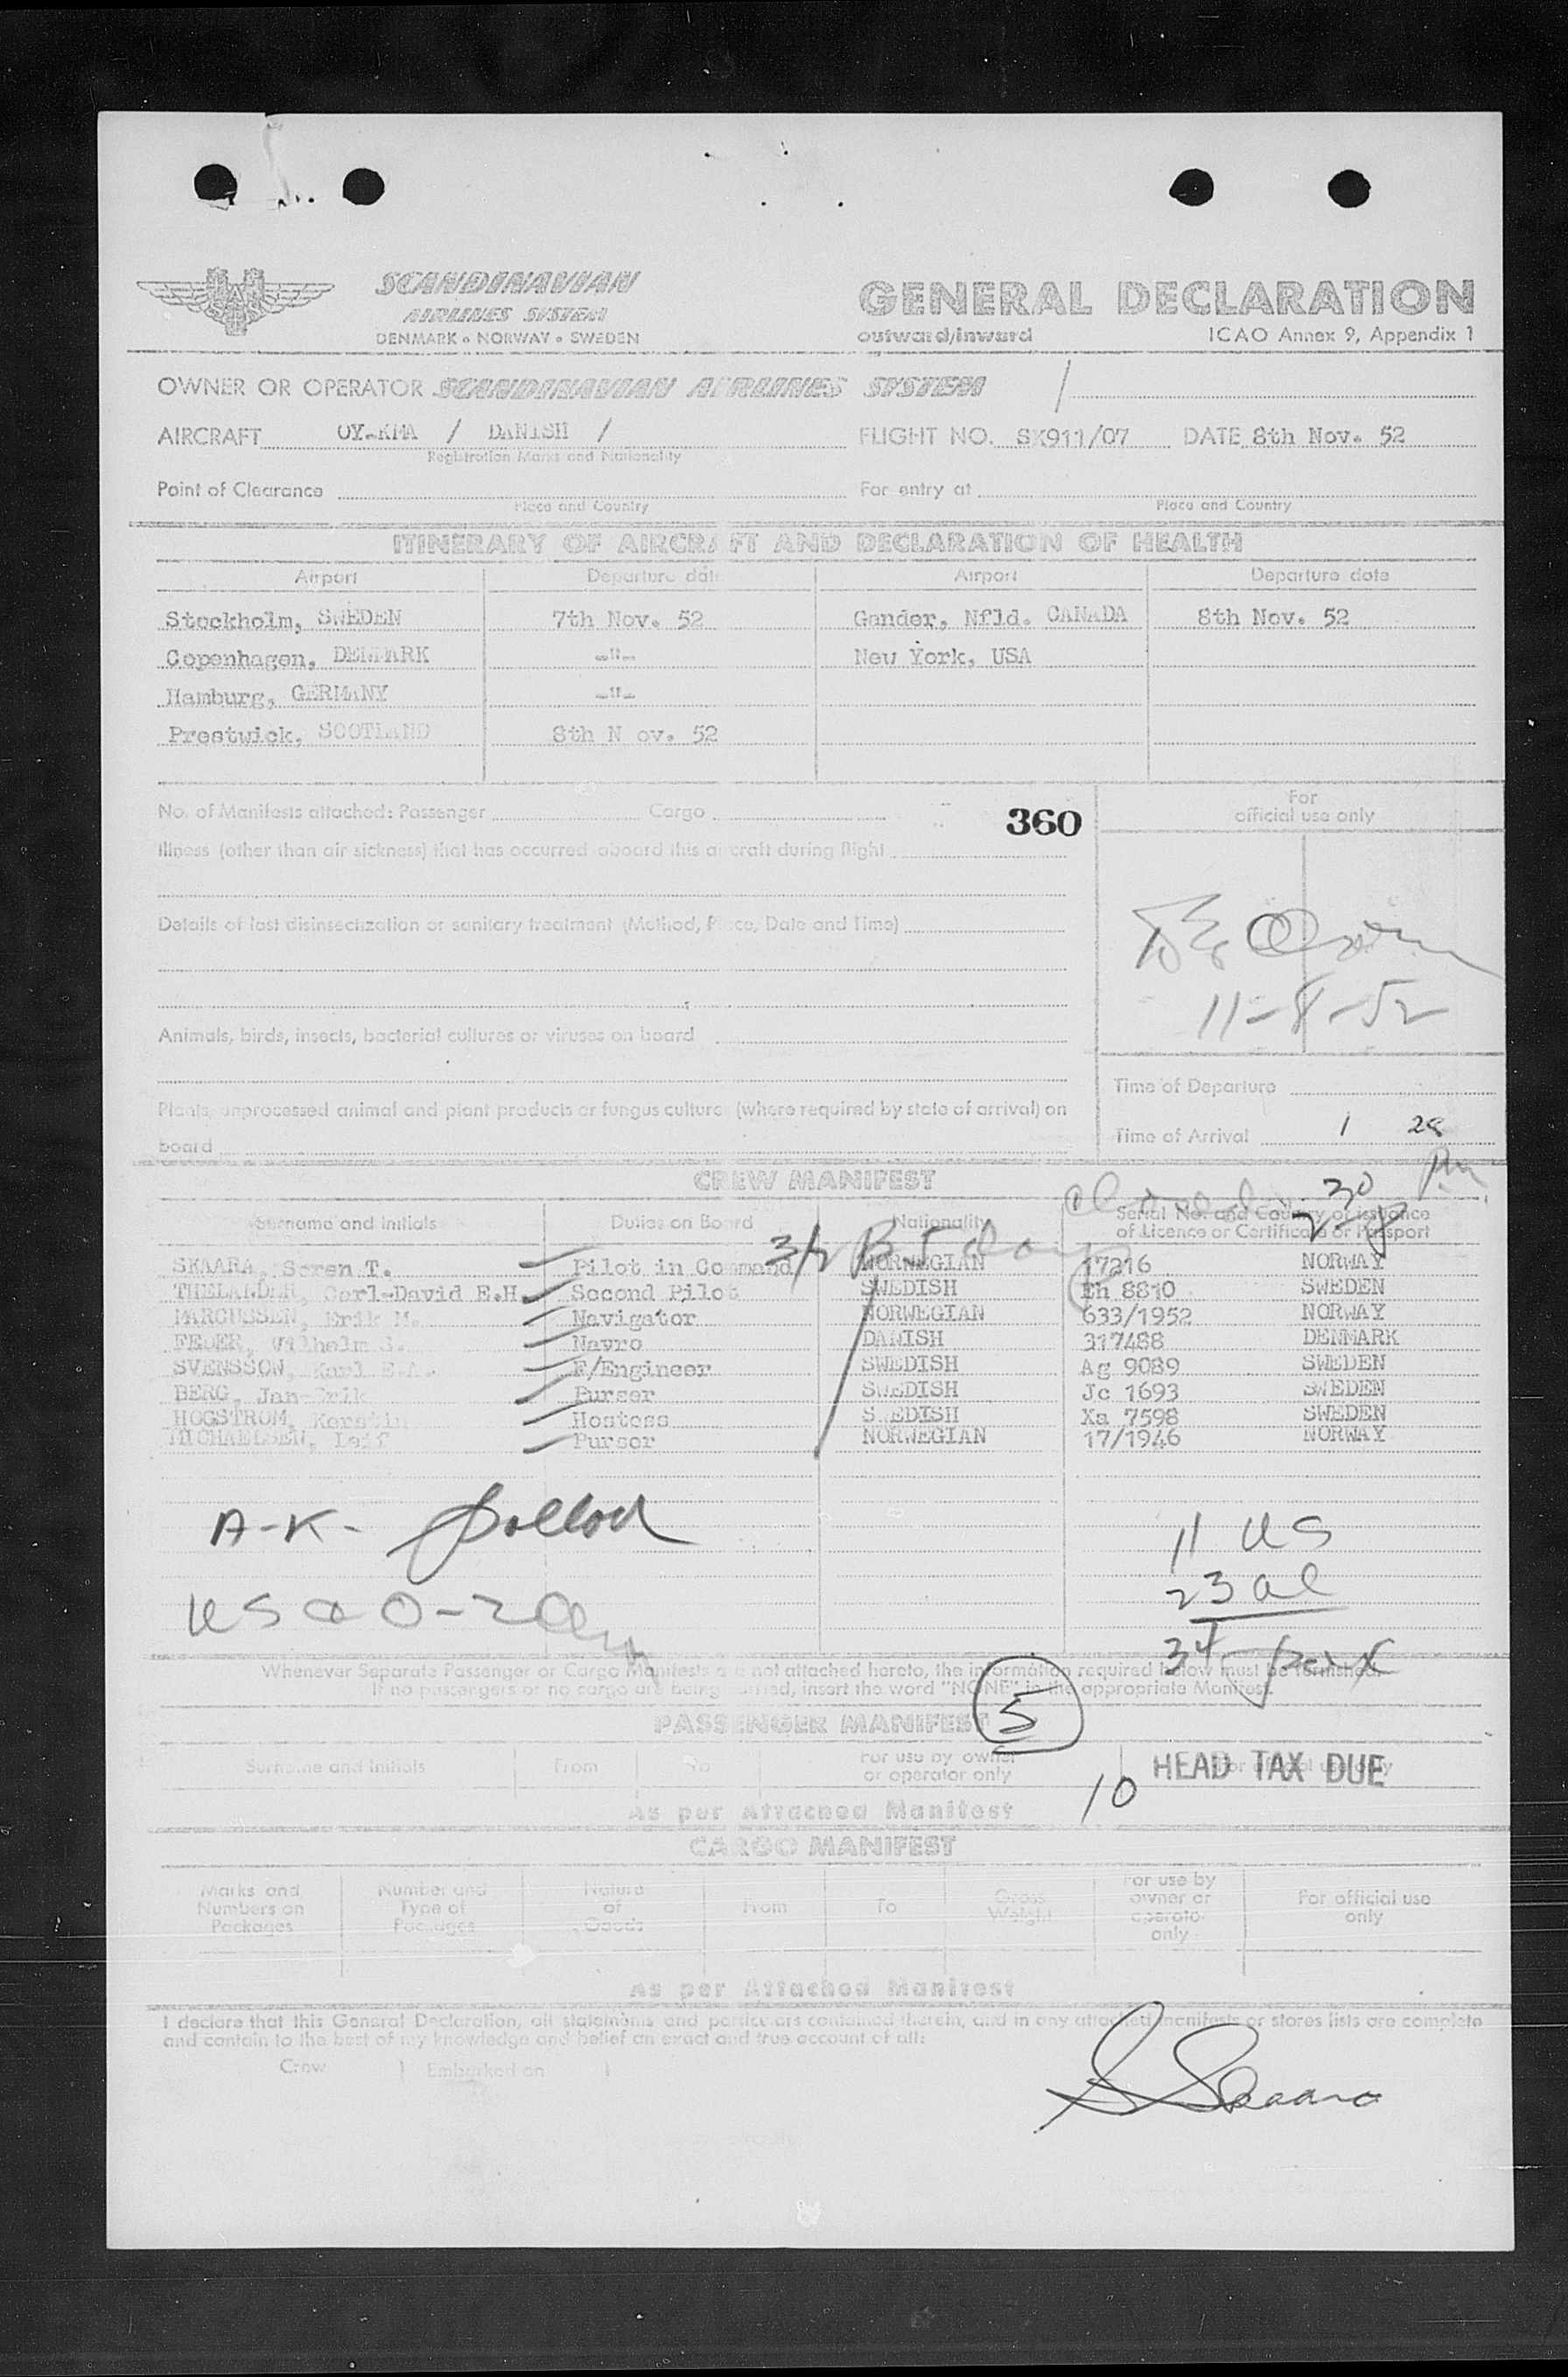 SCANDINAVIAN
AIRLINES SYSTEM
DENMARK • NORWAY • SWEDEN
GENERAL DECLARATION
outward/inward
ICAO Annex 9, Appendix 1
OWNER OR OPERATOR SCANDINAVIAN AIRLINES SYSTEM
AIRCRAFT OY-KMA / DANISH / FLIGHT NO. SK911/07 DATE 8th Nov. 52
Registration Marks and Nationality
Point of Clearance For entry at
Place and Country Place and Country
ITINERARY OF AIRCRAFT AND DECLARATION OF HEALTH
Airport Departure date Airport Departure date
Stockholm, SWEDEN 7th Nov. 52 Gander, Nfld. CANADA 8th Nov. 52
Copenhagen, DENMARK -"- New York, USA
Hamburg, GERMANY -"-
Prestwick, SCOTLAND 8th N ov. 52
No. of Manifests attached: Passenger Cargo
360
For
official use only
Illness (other than air sickness) that has occurred aboard this aircraft during flight
Details of last disinsectization or sanitary treatment (Method, Place, Date and Time)
11-8-52
Animals, birds, insects, bacterial cultures or viruses on board
Time of Departure
Plants, unprocessed animal and plant products or fungus culture (where required by state of arrival) on
board
Time of Arrival 1 28
Pm
CREW MANIFEST
230
Surname and Initials Duties on Board Nationality Serial No. and Country of Issuance
of Licence or Certificate or Passport
SKAARA, Soren T. Pilot in Command NORWEGIAN 17216 NORWAY
THELANDER, Carl-David E.H. Second Pilot SWEDISH Eh 8810 SWEDEN
MARCUSSEN, Erik M. Navigator NORWEGIAN 633/1952 NORWAY
FEDER, Wilhelm J. Navro DANISH 317488 DENMARK
SVENSSON, Karl E.A. F/Engineer SWEDISH Ag 9089 SWEDEN
BERG, Jan-Erik Purser SWEDISH Jc 1693 SWEDEN
HOGSTROM, Kerstin Hostess SWEDISH Xa 7598 SWEDEN
MICHAELSEN, Leif Purser NORWEGIAN 17/1946 NORWAY
A-K-
11 US
23 al
34 pax
Whenever Separate Passenger or Cargo Manifests are not attached hereto, the information required below must be furnished.
If no passengers or no cargo are being carried, insert the word "NONE" in the appropriate Manifest.
5
PASSENGER MANIFEST
Surname and Initials From To For use by owner
or operator only For official use only
10 HEAD TAX DUE
As per Attached Manifest
CARGO MANIFEST
Marks and
Numbers on
Packages
Number and
Type of
Packages
Nature
of
Goods
From
To
Gross
Weight
For use by
owner or
operator
only
For official use
only
As per Attached Manifest
I declare that this General Declaration, all statements and particulars contained therein, and in any attached manifests or stores lists are complete
and contain to the best of my knowledge and belief an exact and true account of all:
Crew } Embarked on
S Skaara